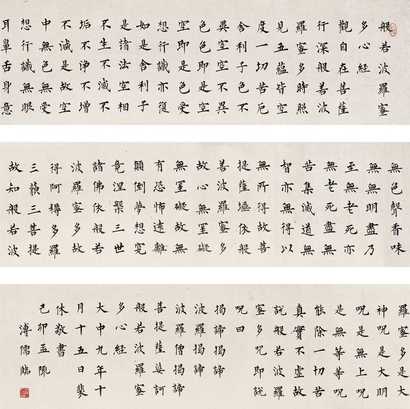 般若波羅蜜
多心經
觀自在菩薩
行深般若波
羅蜜多時照
見五蘊皆空
度一切苦厄
舍利子色不
異空空不異
色色即是空
空即是色受
想行識亦復
如是舍利子
是諸法空相
不生不滅不
垢不淨不增
不減是故空
中無色無受
想行識無眼
耳鼻舌身意
無色聲香味
無無明盡乃
至無老死亦
無老死盡無
苦集滅道無
智亦無得以
無所得故菩
提薩埵依般
若波羅蜜多
故心無罣礙
無罣礙故無
有恐怖遠離
顛倒夢想究
竟涅槃三世
諸佛依般若
波羅蜜多故
得阿耨多羅
三藐三菩提
故知般若波
羅蜜多是大
神呪是大明
呪是無上呪
是無等等呪
能除一切苦
真實不虛故
說般若波羅
蜜多呪即說
呪曰
揭諦揭諦
波羅揭諦
波羅僧揭諦
菩提薩婆訶
般若波羅蜜
多心經
大中九年十
月十五日裴
休敬書
己卯孟陬
溥儒臨